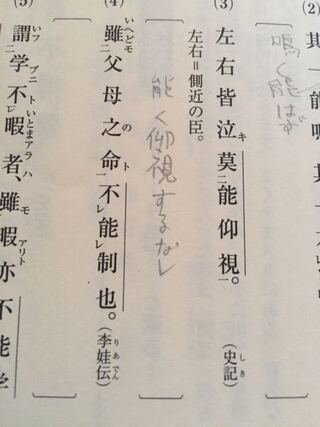 (2) 其一能
鳴く能はず
(3) 左右皆泣キ莫二能仰視一。（史記しき）
左右＝側近の臣。
能く仰視するなし
(4) 雖いへどモ二父母之の命ト一不レ能レ制也。（李娃伝りあでん）
(5) 謂いフ学ブニ不トレ暇いとまアラ者ハ、雖モ暇アリト亦不能学